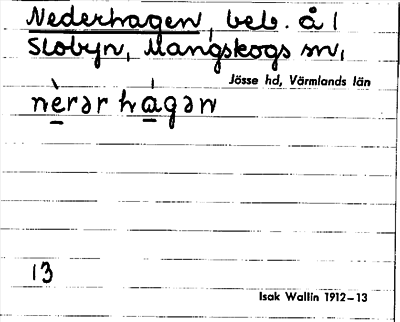 Nederhagen, beb. å 1
Slobyn, Mangskogs sn,
Jösse hd, Värmlands län
nèrər hágən
13
Isak Wallin 1912–13